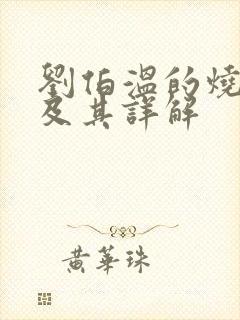 劉伯溫的燒
及其詳解
黃華珠